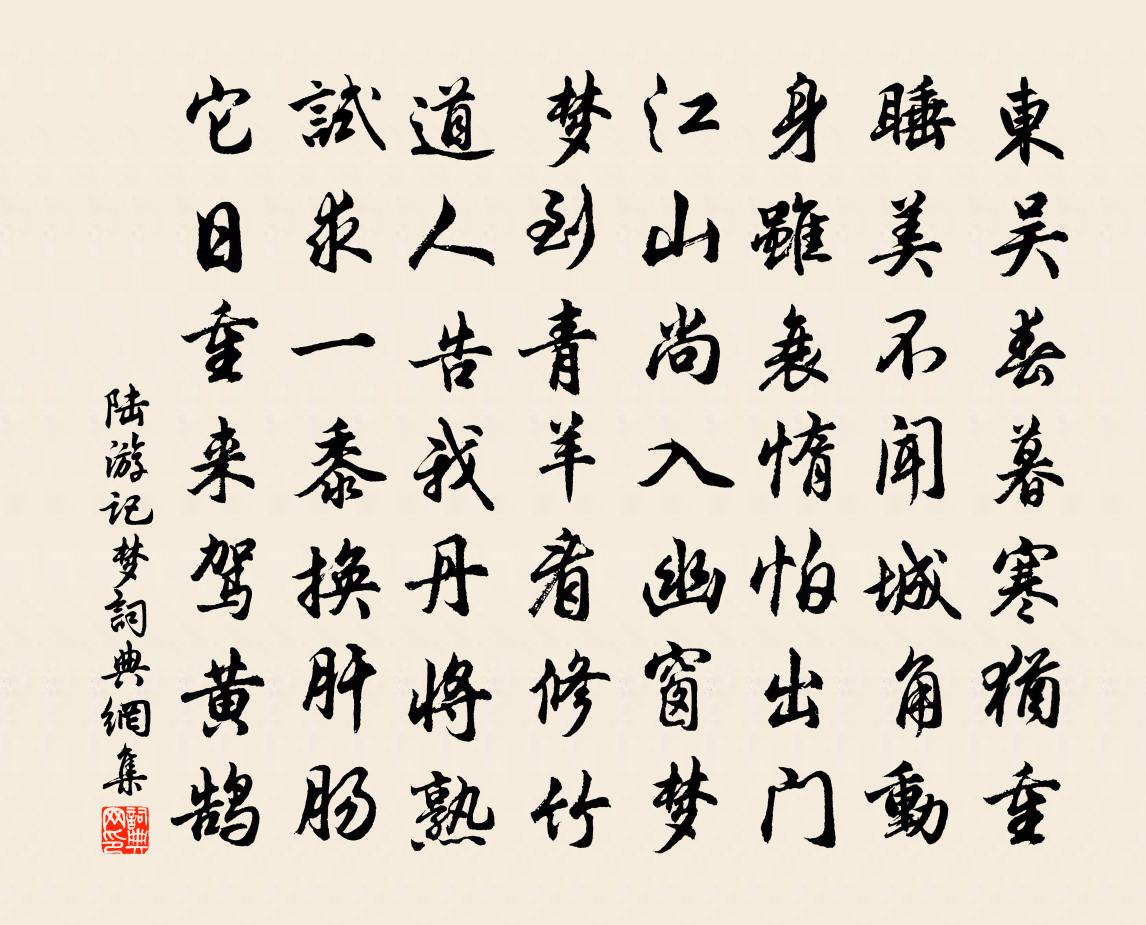 東吴春暮寒猶重
睡美不闻城角動
身雖衰惰怕出门
江山尚入幽窗梦
梦到青羊看修竹
道人告我丹将熟
試求一黍换肝肠
它日重来驾黄鹄
陆游记梦詞典網集
詞典网印